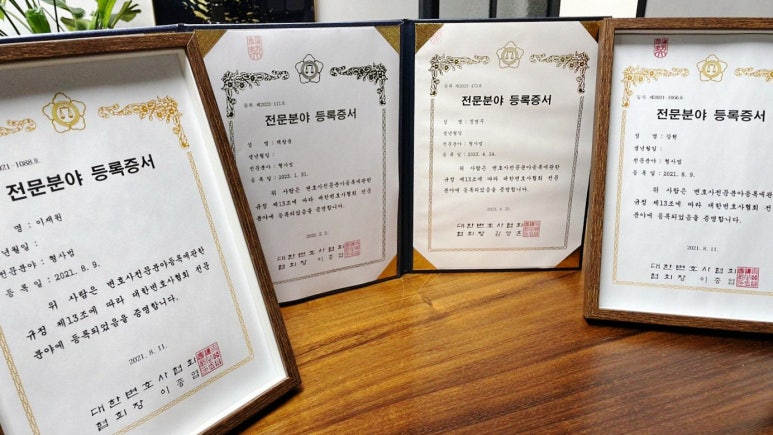 2021-1088호
전문분야 등록증서
명 : 이재원
년월일 :
전문분야 : 형사법
등 록 일 : 2021. 8. 9.
위 사람은 변호사전문분야등록에관한
규정 제13조에 따라 대한변호사협회 전문
분야에 등록되었음을 증명합니다.
2021. 8. 11.
대한변호사협회
협회장 이종엽
등록 제2023-111호
전문분야 등록증서
성 명 :
생년월일 :
전문분야 : 형사법
등 록 일 : 2023. 1. 31.
위 사람은 변호사전문분야등록에관한
규정 제13조에 따라 대한변호사협회 전문
분야에 등록되었음을 증명합니다.
2023. 2. 2.
대한변호사협회
협회장 이종엽
전문분야 등록증서
성 명 :
생년월일
전문분야 : 형사법
등 록 일 : 2023. 4. 24.
위 사람은 변호사전문분야등록에관한
규정 제13조에 따라 대한변호사협회 전문
분야에 등록되었음을 증명합니다.
대한변호사협회
협회장 김영훈
등록 제2021-1056호
전문분야 등록증서
성 명 : 강현
생년월일 :
전문분야 : 형사법
등 록 일 : 2021. 8. 9.
위 사람은 변호사전문분야등록에관한
규정 제13조에 따라 대한변호사협회 전문
분야에 등록되었음을 증명합니다.
2021. 8. 11.
대한변호사협회
협회장 이종엽